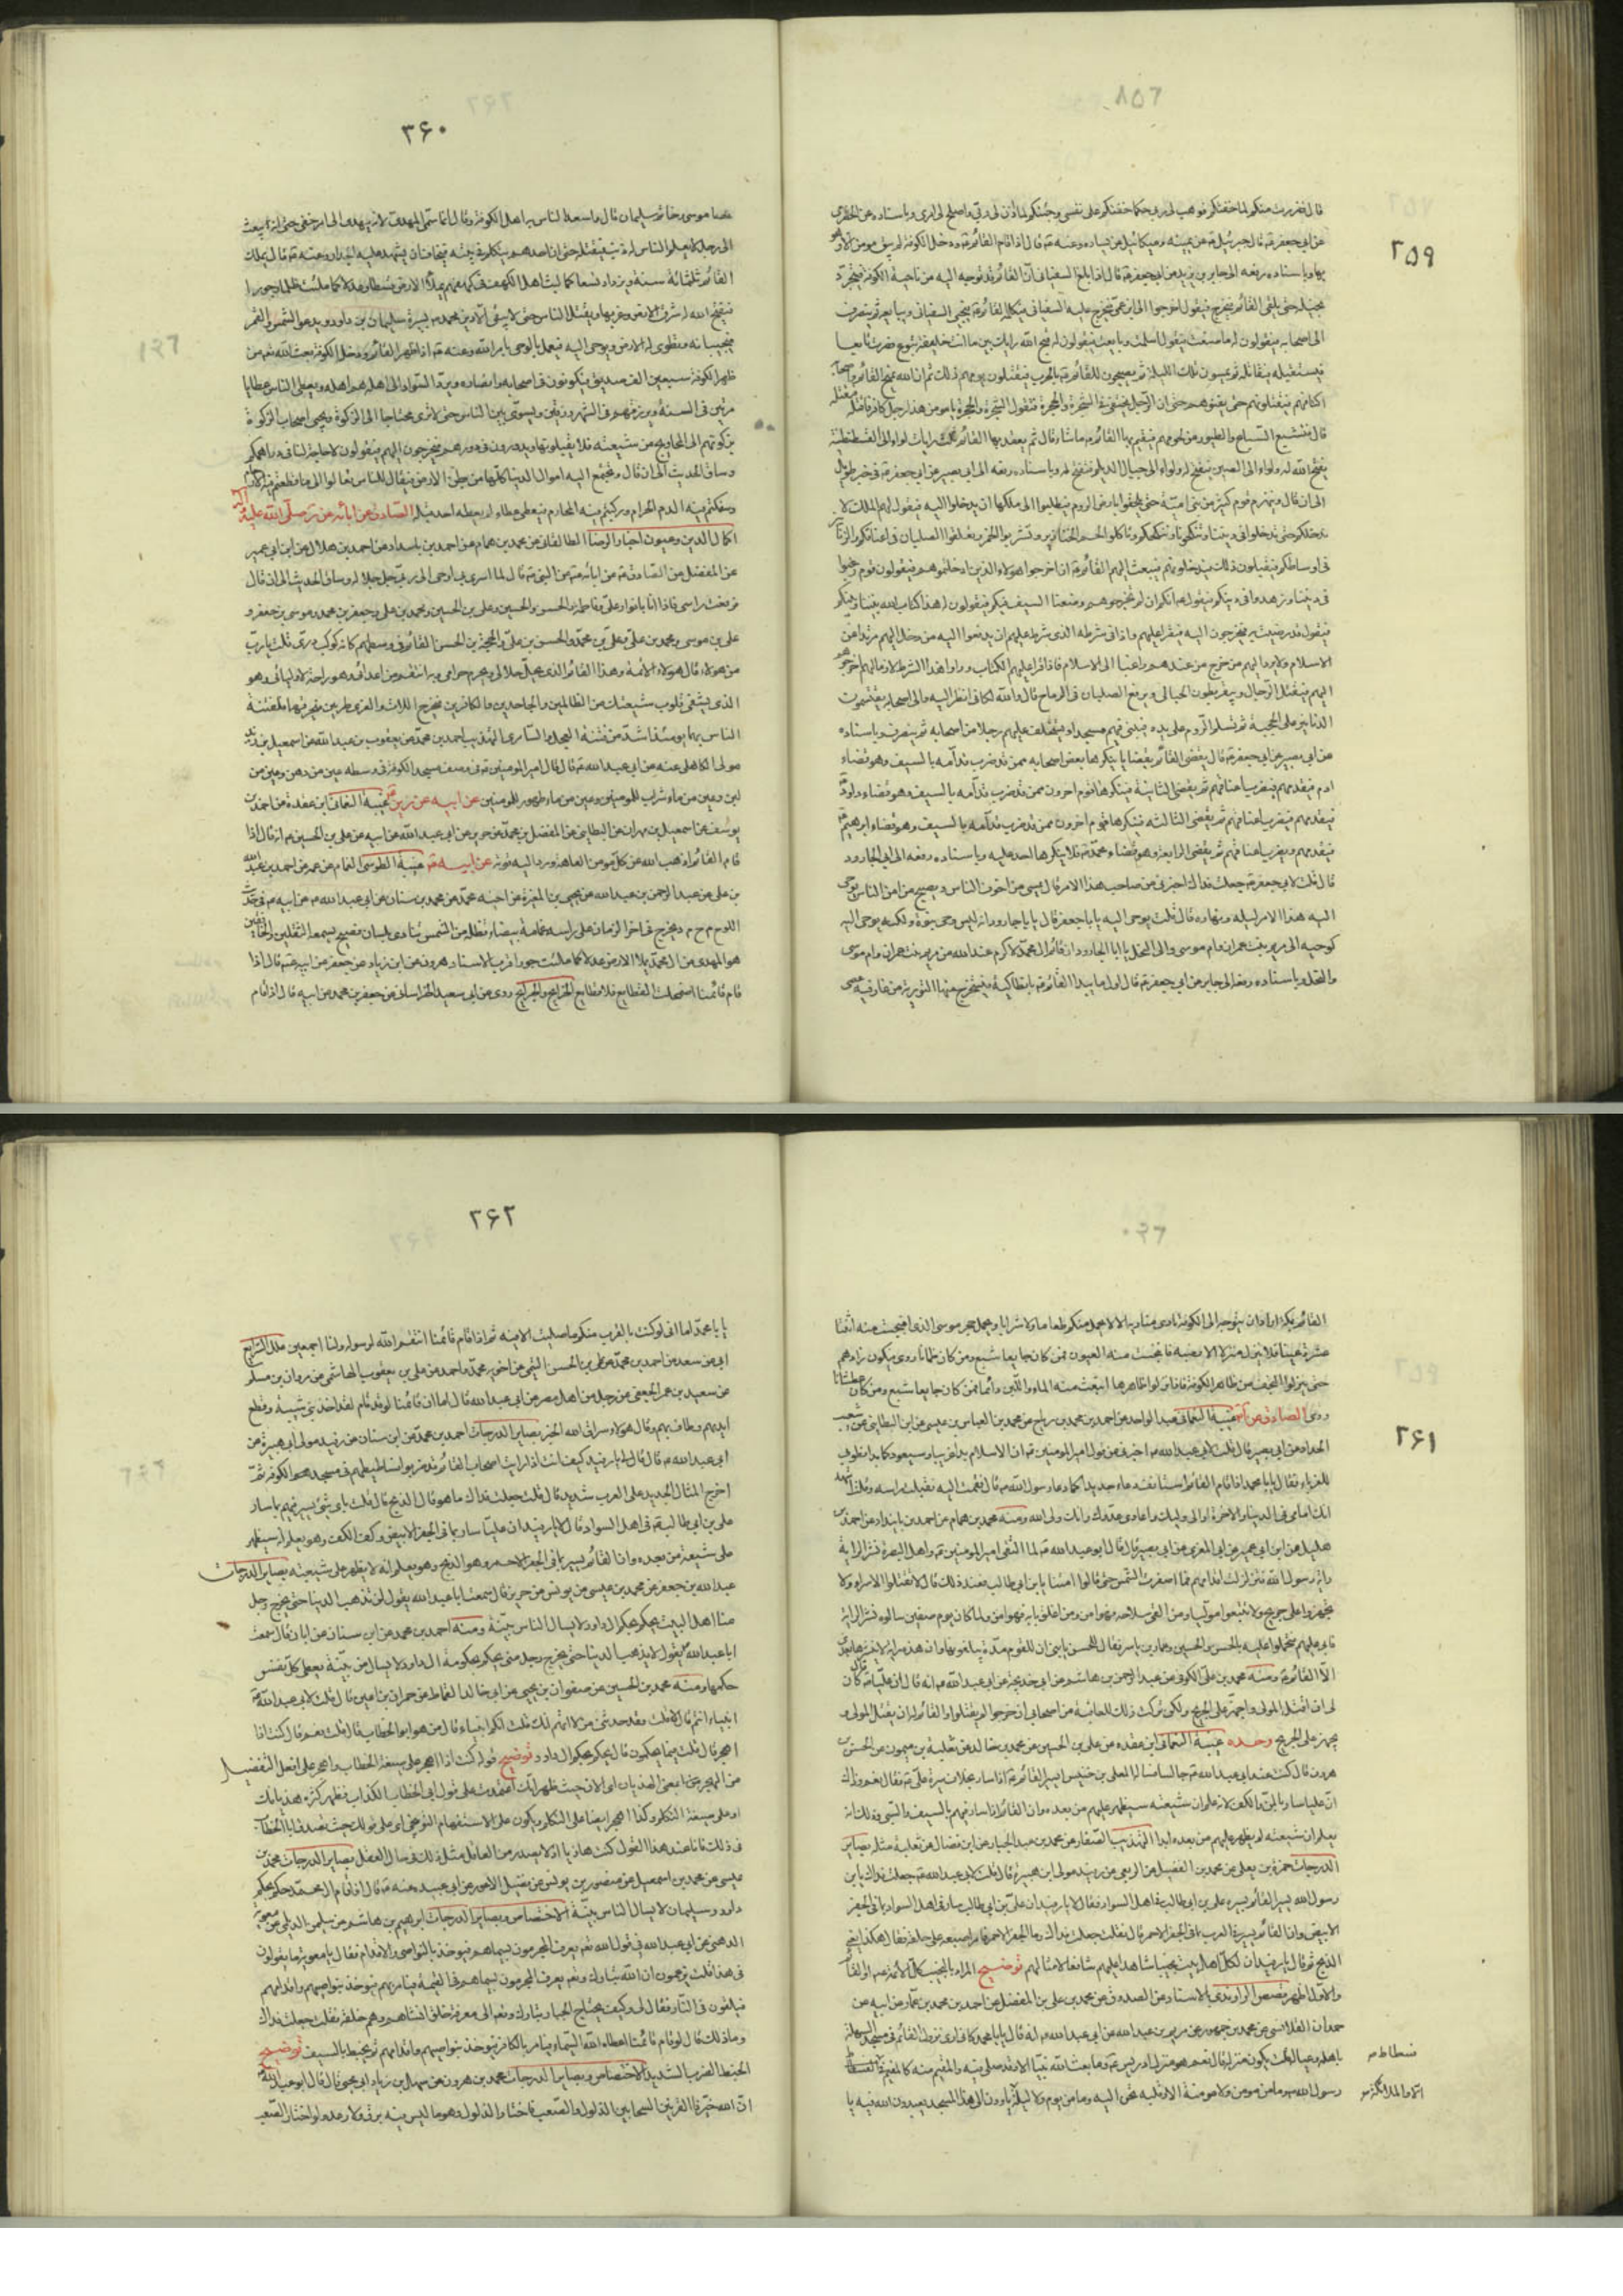 ٣٥٩
قال ففررت منكم لما خفتكم فوهب لي ربي حكما خفتكم على نفسي وجئتكم لما اذن لي ربي واصلح لي امري وباسناده عن
عن ابي جعفر قال جبرئيل عن يمينه وميكائيل عن يساره وعنه قال اذا قام القائم ودخل الكوفة لم يبق مومن الا وهو
بها وباسناده رفعه الى جابر بن يزيد عن ابي جعفر قال اذا بلغ السفياني ان القائم قد توجه اليه من ناحية الكوفة فيتجرد
بخيله حتى يلقى القائم فيخرج فيقول اخرجوا الي ابن عمي فيخرج عليه السفياني فيكلمه القائم فيجئ السفياني فيبايعه ثم ينصرف
الى اصحابه فيقولون له ما صنعت فيقول اسلمت وبايعت فيقولون له قبح الله رايك بين ما انت خليفة متبوع فصرت تابعا
فيستقبله فيقاتله ثم يمسون تلك الليلة ثم يصبحون للقائم بالحرب فيقتتلون يومهم ذلك ثم ان الله يمنح القائم واصحابه
اكتافهم فيقتلونهم حتى يفنوهم حتى ان الرجل يختفي في الشجرة والحجرة فتقول الشجرة والحجرة يا مومن هذا رجل كافر فاقتله فيقتله
قال فتشبع السباع والطيور من لحومهم فيقيم بها القائم ما شاء قال ثم يعقد بها القائم ثلث رايات لواء الى القسطنطنية
يفتح الله له ولواء الى الصين فيفتح له ولواء الى جبال الديلم فيفتح له وباسناده رفعه الى ابي بصير عن ابي جعفر في خبر طويل
الى ان قال وينهزم قوم كثير من بني امية حتى يلحقوا بارض الروم فيطلبوا الى ملكها ان يدخلوا اليه فيقول لهم الملك لا
ندخلكم حتى تدخلوا في ديننا وتنكحونا وننكحكم وتاكلوا لحم الخنازير وتشربوا الخمر وتعلقوا الصلبان في اعناقكم والزنانير
في اوساطكم فيقبلون ذلك فيدخلونهم فيبعث اليهم القائم ان اخرجوا هولاء الذين ادخلتموهم فيقولون قوم رغبوا
في ديننا وزهدوا في دينكم فيقول انكم ان لم تخرجوهم وضعنا السيف فيكم فيقولون له هذا كتاب الله بيننا وبينكم
فيقول قد رضيت به فيخرجون اليه فيقرا عليهم واذا في شرطه الذي شرط عليهم ان يدفعوا اليه من دخل اليهم مرتدا عن
الاسلام ولا يرد اليهم من خرج من عندهم راغبا الى الاسلام فاذا قرا عليهم الكتاب وراوا هذا الشرط لازما لهم اخرجوهم
اليهم فيقتل الرجال ويبقر بطون الحبالى ويرفع الصلبان في الرماح قال والله لكاني انظر اليه والى اصحابه يقتسمون
الدنانير على الجحفة ثم تسلم الروم على يده فيبني فيهم مسجدا ويستخلف عليهم رجلا من اصحابه ثم ينصرف وباسناده
عن ابي بصير عن ابي جعفر قال يقضي القائم بقضايا ينكرها بعض اصحابه ممن قد ضرب قدامه بالسيف وهو قضاء
ادم فيقدمهم فيضرب اعناقهم ثم يقضي الثانية فينكرها قوم اخرون ممن قد ضرب قدامه بالسيف وهو قضاء داود
فيقدمهم فيضرب اعناقهم ثم يقضي الثالثه فينكرها قوم اخرون ممن قد ضرب قدامه بالسيف وهو قضاء ابرهيم
فيقدمهم فيضرب اعناقهم ثم يقضي الرابعة وهو قضاء محمد فلا ينكرها احد عليه وباسناده رفعه الى ابي الجارود
قال قلت لابي جعفر جعلت فداك اخبرني عن صاحب هذا الامر قال يمسي من اخوف الناس ويصبح من امن الناس يوحى
اليه هذا الامر ليله ونهاره قال قلت يوحى اليه يا ابا جعفر قال يا با جارود انه ليس وحي نبوة ولكنه يوحى اليه
كوحيه الى مريم بنت عمران وام موسى والى النحل يا ابا الجارود ان قائم ال محمد لاكرم عند الله من مريم بنت عمران وام موسى
والنحل وباسناده رفعه الى جابر عن ابي جعفر قال اول ما يبدا القائم بانطاكية فيستخرج منها التورية من غار فيه عصى
٣۶٠
عصا موسى وخاتم سليمان قال واسعد الناس به اهل الكوفة وقال انما سمي المهدي لانه يهدي الى امر خفي حتى انه يبعث
الى رجل لا يعلم الناس له ذنب فيقتله حتى ان احدهم يتكلم في بيته فيخاف ان يشهد عليه الجدار وعنه قال يملك
القائم ثلثمائة سنة ويزداد تسعا كما لبث اهل الكهف في كهفهم يملا الارض قسطا وعدلا كما ملئت ظلما وجورا
فيفتح الله له شرق الارض وغربها ويقتل الناس حتى لا يبقى الا دين محمد يسير بسيرة سليمان بن داود ويدعو الشمس والقمر
فيجيبانه وتطوى له الارض ويوحى اليه فيعمل بالوحي بامر الله وعنه اذا ظهر القائم ودخل الكوفة بعث الله تعه من
ظهر الكوفة سبعين الف صديق فيكونون في اصحابه وانصاره ويرد السواد الى اهله هم اهله ويعطي الناس عطايا
مرتين في السنة ويرزقهم في الشهر رزقين ويسوي بين الناس حتى لا ترى محتاجا الى الزكوة ويجئ اصحاب الزكوة
بزكوتهم الى المحاويج من شيعته فلا يقبلونها ويدورون في دورهم فيخرجون اليهم فيقولون لا حاجة لنا في دراهمكم
وساق الحديث الى ان قال وتجتمع اليه اموال الدنيا كلها من بطن الارض فيقال للناس تعالوا الى ما قطعتم فيه
وسفكتم فيه الدم الحرام وركبتم فيه المحارم فيعطي عطاء لم يعطه احد قبله الصادق عن ابائه عن صلى الله عليه واله
اكمال الدين وعيون اخبار الرضا الطالقاني عن محمد بن همام عن احمد بن عن احمد بن هلال عن ابن ابي عمير
عن المفضل عن الصادق عن ابائه عن النبي قال لما اسري بي اوحى الي ربي جل جلاله وساق الحديث الى ان قال
فرفعت راسي فاذا انا بانوار علي وفاطمة والحسن والحسين وعلي بن الحسين ومحمد بن علي وجعفر بن محمد وموسى بن جعفر و
علي بن موسى ومحمد بن علي وعلي بن محمد والحسن بن علي والحجة بن الحسن القائم في وسطهم كانه كوكب دري قلت يا رب
من هولاء قال هولاء الائمة وهذا القائم الذي يحل حلالي ويحرم حرامي وبه انتقم من اعدائي وهو راحة لاوليائي وهو
الذي يشفي قلوب شيعتك من الظالمين والجاحدين والكافرين فيخرج اللات والعزى طريين فيحرقهما فلفتنة
الناس بهما يومئذ اشد من فتنة العجل والسامري التهذيب احمد بن محمد عن يعقوب بن عبد الله عن اسمعيل بن زيد
مولى الكاهلي عنه عن ابي عبد الله قال قال امير المومنين في وصف مسجد الكوفة في وسطه عين من دهن وعين من
لبن وعين من ماء شراب للمومنين وعين من ماء طهور للمومنين عن ابيه عن غيبة النعماني ابن عقدة عن احمد بن
يوسف عن اسمعيل بن مهران عن البطائني عن المفضل بن محمد عن حريز عن ابي عبد الله عن ابيه عن علي بن الحسين انه قال اذا
قام القائم اذهب الله عن كل مومن العاهة ورد اليه قوته عن ابيه غيبة الطوسي
بن علي عن عبد الرحمن بن عبد الله عن يحيى بن المغيرة عن اخيه محمد عن محمد بن سنان عن ابي عبد الله عن ابيه في
اللوح م ح م د يخرج في اخر الزمان على راسه غمامة بيضاء تظله من الشمس ينادي بلسان فصيح يسمعه الثقلين والخافقين
هو المهدي من ال محمد يملا الارض عدلا كما ملئت جورا قرب الاسناد هرون عن ابن زياد عن جعفر عن ابيه قال اذا
قام قائمنا اضمحلت القطايع فلا قطايع الخرايج والجرايح روي عن ابي سعيد الخراساني عن جعفر بن محمد عن ابيه قال اذا قام
٢۶١
القائم بمكة واراد ان يتوجه الى الكوفة نادى مناديه الا لا يحمل احد منكم طعاما ولا شرابا ويحمل حجر موسى الذي انبجست منه اثنتا
عشرة عينا فلا ينزل منزلا الا نصبه فانبجست منه العيون فمن كان جايعا شبع ومن كان ظمانا روي فيكون زادهم
حتى ينزلوا النجف من ظاهر الكوفة فاذا نزلوا ظاهرها انبعث منه الماء واللبن دائما فمن كان جايعا شبع ومن كان عطشانا
روي الصادق عن غيبة النعماني عبد الواحد عن احمد بن محمد بن رباح عن محمد بن العباس بن عيسى عن ابن البطائني عن شعيب
الحداد عن ابي بصير قال قلت لابي عبد الله اخبرني عن قول امير المومنين ان الاسلام بدا غريبا وسيعود كما بدا فطوبى
للغرباء فقال يا با محمد اذا قام القائم استانف دعاء جديدا كما دعا رسول الله قال فقمت اليه فقبلت راسه وقلت اشهد
انك امامي في الدنيا والاخرة اوالي وليك واعادي عدوك وانك ولي الله ومنه محمد بن همام عن احمد بن مابنداد عن احمد بن
هليل عن ابن ابي عمير عن ابي المغرى عن ابي بصير قال قال ابو عبد الله لما التقى امير المومنين واهل البصرة نشر الراية
راية رسول الله فتزلزلت اقدامهم فما اصفرت الشمس حتى قالوا امنا يا ابن ابي طالب فعند ذلك قال لا تقتلوا الاسراء ولا
تجهزوا على جريح ولا تتبعوا موليا ومن القى سلاحه فهو امن ومن اغلق بابه فهو امن ولما كان يوم صفين سالوه نشر الراية
فابى عليهم فتحملوا عليه بالحسن والحسين وعمار بن ياسر فقال للحسن يا بني ان للقوم مدة يبلغونها وان هذه راية لا ينشرها بعدي
الا القائم ومنه محمد بن علي الكوفي عن عبد الرحمن بن هاشم عن ابي خديجة عن ابي عبد الله انه قال ان عليا قال كان
لي ان اقتل المولي واجهز على الجريح ولكن تركت ذلك للعاقبة من اصحابي ان خرجوا لم يقتلوا والقائم له ان يقتل المولي و
يجهز على الجريح وحده غيبة النعماني ابن عقدة عن علي بن الحسين عن محمد بن خالد عن ثعلبة بن ميمون عن الحسن بن
هرون قال كنت عند ابي عبد الله جالسا فساله المعلى بن خنيس ايسير القائم اذا سار بخلاف سيرة علي فقال نعم وذاك
ان عليا سار بالمن والكف لانه علم ان شيعته سيظهر عليهم من بعده وان القائم اذا سار فيهم بالسيف والسبي وذلك انه
يعلم ان شيعته لم يظهر عليهم من بعده ابدا التهذيب الصفار عن محمد بن عبد الجبار عن ابن فضال عن ثعلبة مثله بصاير
الدرجات حمزة بن يعلى عن محمد بن الفضيل عن الربعي عن رفيد مولى ابن هبيرة قال قلت لابي عبد الله جعلت فداك يا بن
رسول الله يسير القائم بسيرة علي بن ابي طالب في اهل السواد فقال لا يا رفيد ان علي بن ابي طالب سار في اهل السواد بما في الجفر
الابيض وان القائم يسير في العرب بما في الجفر الاحمر قال فقلت جعلت فداك وما الجفر الاحمر قال فامر اصبعه على حلقه فقال هكذا يعني
الذبح ثم قال يا رفيد ان لكل اهل بيت نجيبا شاهدا عليهم شافعا لامثالهم توضيح المراد بالنجيب كل الائمة او القائم
والاول اظهر قصص الراوندي بالاسناد عن الصدوق عن محمد بن علي بن المفضل عن احمد بن محمد بن عمار عن ابيه عن
حمدان القلانسي عن محمد بن جمهور عن مريم بن عبد الله عن ابي عبد الله انه قال يا با محمد كاني ارى نزول القائم في مسجد السهلة
باهله وعياله قلت يكون منزله قال نعم هو منزل ادريس وما بعث الله نبيا الا وقد صلى فيه والمقيم فيه كالمقيم في فسطاط
رسول الله وما من مومن ولا مومنة الا وقلبه يحن اليه وما من يوم ولا ليلة ياوون الى هذا المسجد يعبدون الله فيه يا
فسطاط
الا والملائكة
٢۶٢
يا با محمد اما اني لو كنت بالقرب منكم ما صليت الا فيه ثم اذا قام قائمنا انتقم الله لرسوله ولنا اجمعين علل الشرايع
ابي عن سعد عن احمد بن محمد عن علي بن الحسن التيمي عن اخويه محمد واحمد عن علي بن يعقوب الهاشمي عن مروان بن مسلم
عن سعيد بن عمر الجعفي عن رجل من اهل مصر عن ابي عبد الله قال اما ان قائمنا لو قد قام لقد اخذ بني شيبة وقطع
ايديهم وطاف بهم وقال هولاء سراق الله الخبر بصاير الدرجات احمد بن محمد عن ابن سنان عن رفيد مولى ابي هبيرة عن
ابي عبد الله قال قال لي يا رفيد كيف انت اذا رايت اصحاب القائم قد ضربوا فساطيطهم في مسجد الكوفة ثم
اخرج المثال الجديد على العرب شديد قال قلت جعلت فداك ما هو قال الذبح قال قلت باي شئ يسير فيهم بما سار
علي بن ابي طالب في اهل السواد قال لا يا رفيد ان عليا سار بما في الجفر الابيض وكف الكف وهو يعلم انه سيظهر
على شيعته من بعده وان القائم يسير بما في الجفر الاحمر وهو الذبح وهو يعلم انه لا يظهر على شيعته بصاير الدرجات
عبد الله بن جعفر عن محمد بن عيسى عن يونس عن حريز قال سمعت ابا عبد الله يقول لن تذهب الدنيا حتى يخرج رجل
منا اهل البيت يحكم بحكم ال داود لا يسال الناس بينة ومنه احمد بن محمد عن ابن سنان عن ابان قال سمعت
ابا عبد الله يقول لا يذهب الدنيا حتى يخرج رجل مني يحكم بحكومة ال داود لا يسال عن بينة يعطي كل نفس
حكمها ومنه محمد بن الحسين عن صفوان بن يحيى عن ابي خالد القماط عن حمران بن اعين قال قلت لابي عبد الله
انبياء انتم قال لا قلت فقد حدثني من لا اتهم انك قلت انكم انبياء قال من هو ابو الخطاب قال قلت نعم قال كنت اذا
اهجر قال قلت بما تحكمون قال يحكم بحكم ال داود توضيح قوله كنت اذا اهجر على صيغة الخطاب واهجر على افعل التفضيل
في ذلك فانا عند هذا القول كنت هاذيا اذ لا يصدر من العاقل مثل ذلك في حال العقل بصاير الدرجات محمد بن
عيسى عن محمد بن اسمعيل عن منصور بن يونس عن فضيل الاعور عن ابي عبيدة عنه قال اذا قام ال محمد حكم بحكم
داود وسليمان لا يسال الناس بينة الاختصاص وبصاير الدرجات ابراهيم بن هاشم عن سليمن الديلمي عن معوية
الدهني عن ابي عبد الله في قول الله تعه يعرف المجرمون بسيماهم فيوخذ بالنواصي والاقدام فقال يا معوية ما يقولون
في هذا قلت يزعمون ان الله تبارك وتعه يعرف المجرمون بسيماهم في القيمة فيامر بهم فيوخذ بنواصيهم واقدامهم
فيلقون في النار فقال لي وكيف يحتاج الجبار تبارك وتعه الى معرفة خلق انشاهم وهم خلقه فقلت جعلت فداك
وما ذلك قال لو قام قائمنا اعطاه الله السيماء فيامر بالكافر فيوخذ بنواصيهم واقدامهم ثم يخبط بالسيف توضيح
الخبط الضرب الشديد الاختصاص وبصاير الدرجات محمد بن هرون عن سهل بن زياد ابي يحيى قال قال ابو عبد الله
ان الله خير ذا القرنين السحابين الذلول والصعب فاختار الذلول وهو ما ليس فيه برق ولا رعد ولو اختار الصعب